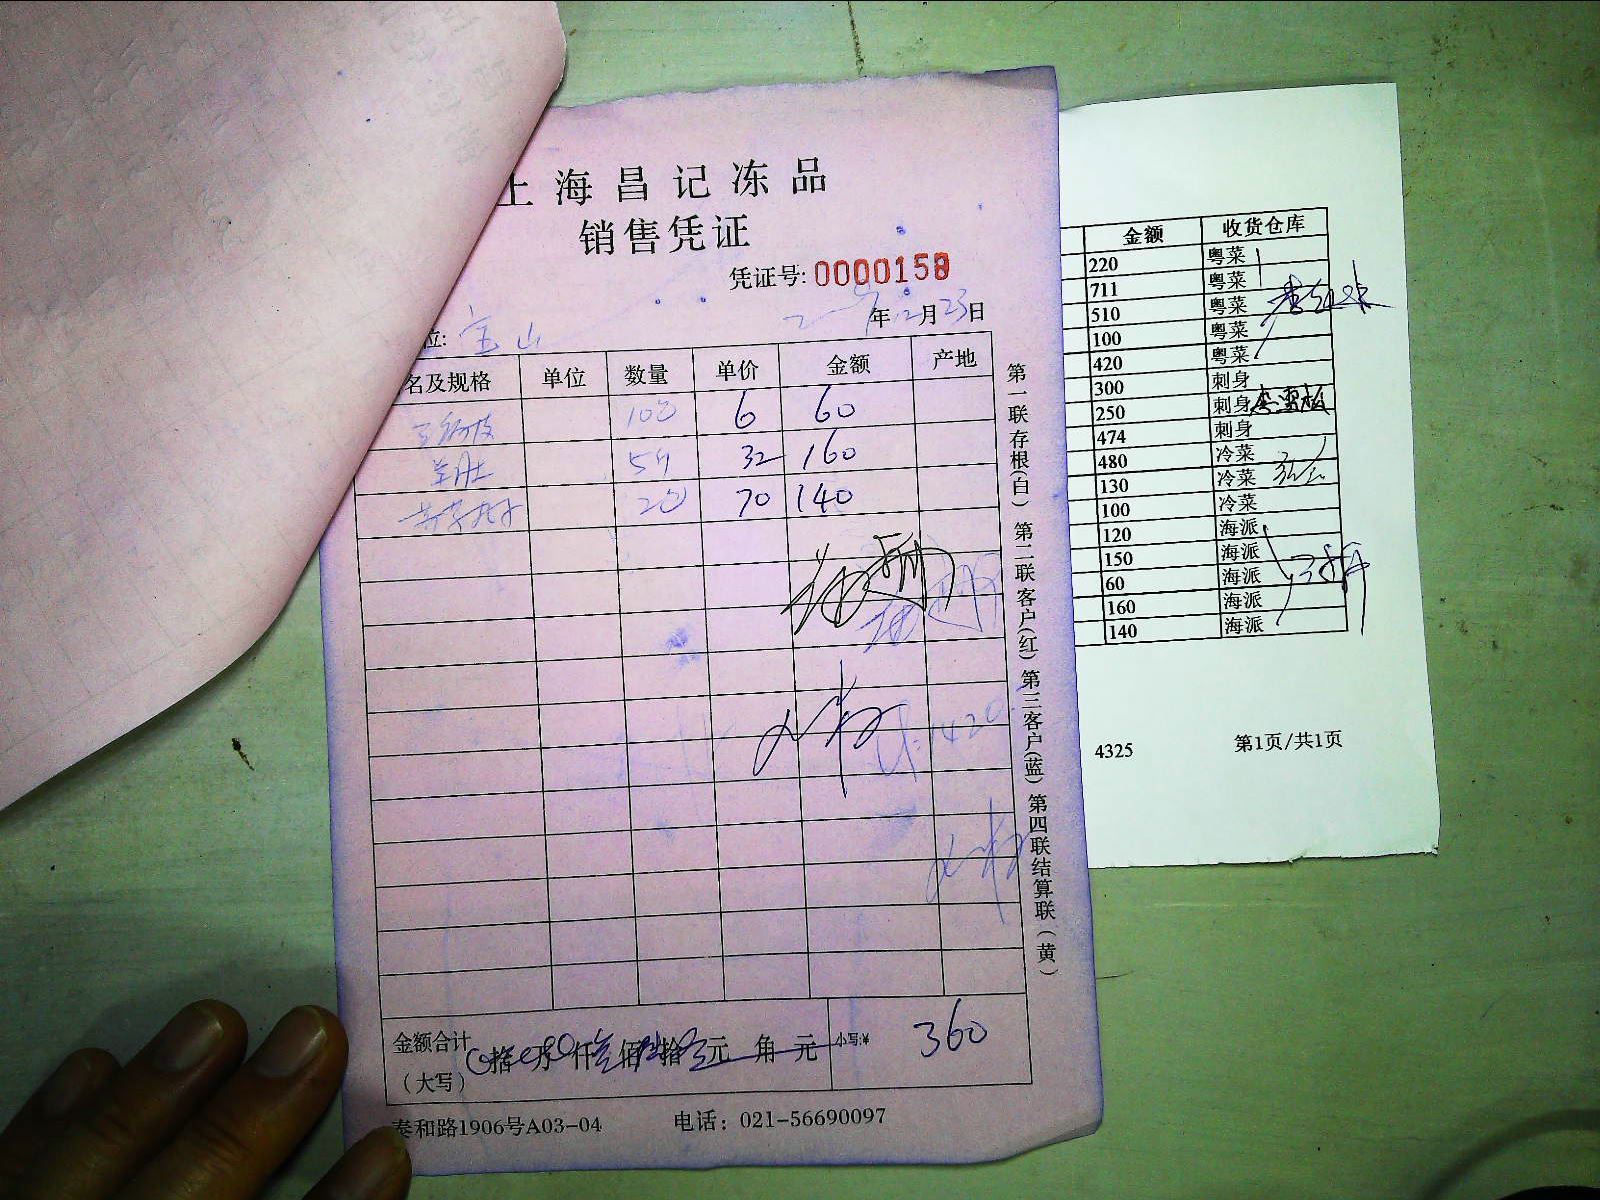 上海昌记冻品
销售凭证
凭证号: 0000158
位: 宝山 年12月23日
名及规格 单位 数量 单价 金额 产地
6 60
羊肚 5斤 32 160
70 140
金额合计 拾 万 仟 佰 拾 元 角 元 小写:¥ 360
(大写)
泰和路1906号A03-04 电话: 021-56690097
第一联存根(白) 第二联客户(红) 第三客户(蓝) 第四联结算联(黄)
金额 收货仓库
220 粤菜
711 粤菜
510 粤菜
100 粤菜
420 粤菜
300 刺身
250 刺身
474 刺身
480 冷菜
130 冷菜
100 冷菜
120 海派
150 海派
60 海派
160 海派
140 海派
4325 第1页/共1页